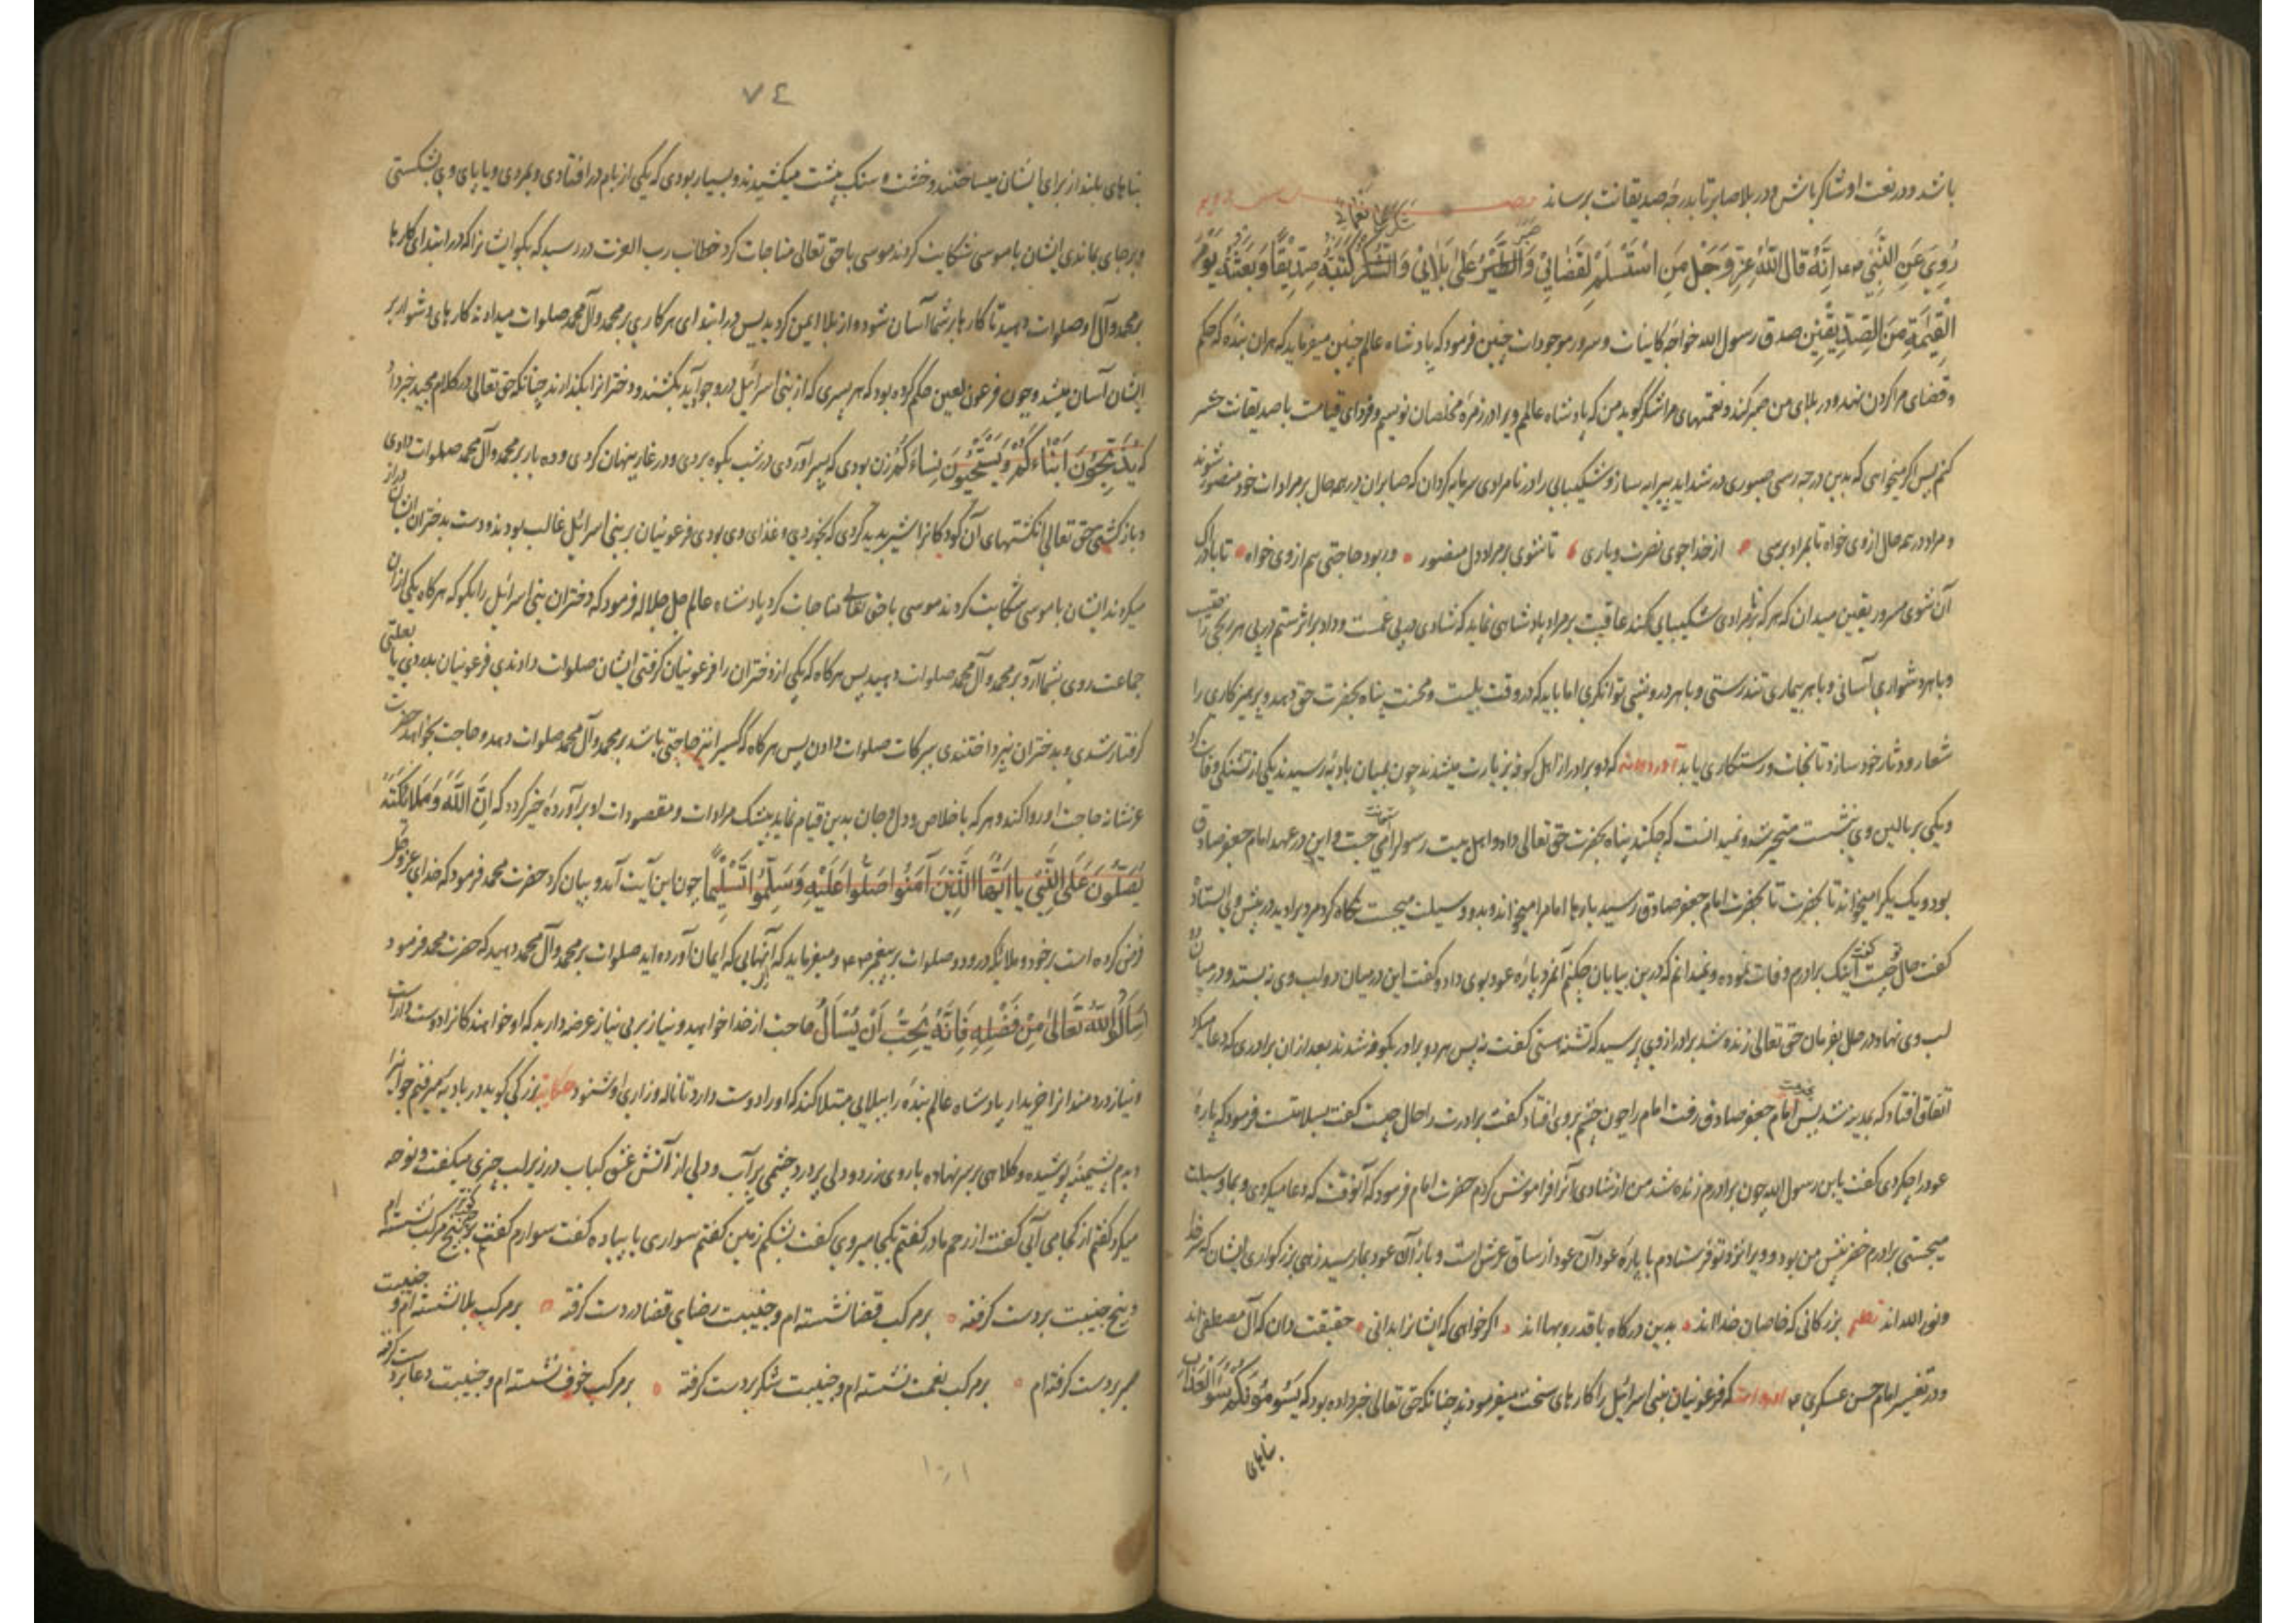 باشد و در نعمت او شاکر باش و در بلا صابر تا بدرجه صدیقانت برساند
رُوِیَ عَنِ النَّبِیِّ انه قَالَ اللّهُ عَزَّ وَجَلَّ مَنِ اسْتَسْلَمَ لِقَضَائِی وَ صبر عَلیٰ بَلَائِی وَ شکر علی نعمائی کَتَبْتُهُ صِدِّیقًا وَبَعَثْتُهُ یَوْمَ
الْقِیٰمَةِ مِنَ الصِّدِّیقِینَ صدق رسول الله خواجه کاینات و سرور موجودات چنین فرمود که پادشاه عالم چنین میفرماید که هران بنده که حکم
و قضای مرا گردن نهد و در بلای من صبر کند و نعمتهای مرا شکر گوید من که پادشاه عالمم ویرا در زمره مخلصان نویسم و فردای قیامت با صدیقانت حشر
کنم پس اگر میخواهی که بدین درجه رسی صبوری در شداید پیرایه ساز و شکیبایی را در نامرادی سرمایه گردان که صابران در همه حال بر مرادات خود منصور شوند
و مراد در همه حال از وی خواه تا بمراد برسی از خدا جوی نصرت و یاری تا شوی بر مراد دل منصور ور بود حاجتی هم از وی خواه تا
آن شوی مسرور یقین میدان که هر که بر نامرادی شکیبایی کند عاقبت بر مراد پادشاهی نماید که شادی در پی غمست و داد بر اثر ستم در پی هر رنجی
و با هر دشواری آسانی و با هر بیماری تندرستی و با هر درویشی توانگری اما باید که در وقت بلیت و محنت پناه بحضرت حق دهد و پرهیزکاری را
شعار و دثار خود سازد تا نجات و رستکاری یابد آورده‌اند که دو برادر از اهل کوفه بزیارت میشدند چون بمیان بادیه رسیدند یکی از تشنگی وفات کرد
و یکی بر بالین وی بنشست متحیر شد و نمیدانست که چکند پناه بحضرت حق تعالی داد و اهل بیت رسول را می جست و این در عهد امام جعفر صادق
بود و یک بیک را میخواند تا بحضرت تا بحضرت امام جعفر صادق رسید بارها امام را میخواند و بدو وسیلت میجست نگاه کرد مردی را دید در پیش وی ایستاده
گفت حال تو چیست گفت اینک برادرم وفات نموده و نمیدانم که درین بیابان چکنم آنمرد پاره عود بوی داد و گفت این در میان دو لب وی نه بستد و در میان دو
لب وی نهاد در حال بفرمان حق تعالی زنده شد برادر از وی پرسید که تشنه هستی گفت نه پس هر دو برادر بکوفه شدند بعد از ان برادری که دعا میکرد
اتفاق افتاد که بمدینه شد پس بخدمت امام جعفر صادق رفت امام را چون چشم بر وی افتاد گفت برادرت را حال چیست گفت بسلامتست فرمود که پاره
عود را چکردی گفت یابن رسول الله چون برادرم زنده شد من از شادی آنرا فراموش کردم حضرت امام فرمود که آنوقت که دعا میکردی و بما وسیلت
میجستی برادرم خضر پیش من بود ویرا نزد تو فرستادم با پاره عود آن عود از ساق عرش است و باز آن عود بما رسید زهی بزرکواری ایشان که
و نور الله اند نظم بزرکانی که خاصان خدااند بدین درکاه با قدر و بهااند اکر خواهی که ایشانرا بدانی حقیقت دان که آل مصطفی اند
و در تفسیر امام حسن عسکری که فرعونیان بنی اسرائیل را کارهای سخت میفرمودند چنانکه حق تعالی خبر داده بود که یَسُومُونَکُمْ سُوءَ الْعَذَابِ
بناهای
٧٤
بناهای بلند از برای ایشان میساختند و خشت و سنک به پشت میکشیدند و بسیار بودی که یکی از بام در افتادی و بمردی و یا پای وی بشکستی
و بر جای بماندی ایشان با موسی شکایت کردند موسی با حق تعالی مناجات کرد خطاب رب العزت در رسید که بگو ایشانرا که در ابتدای کارها
بر محمد و آل او صلوات دهید تا کارها بر شما آسان شود و از بلا ایمن کردید پس در ابتدای هر کاری بر محمد و آل محمد صلوات میدادند کارهای دشوار بر
ایشان آسان میشد و چون فرعون لعین حکم کرده بود که هر پسری که از بنی اسرائیل در وجود آید بکشند و دخترانرا بکذارند چنانکه حق تعالی در کلام مجید خبر داد
که یُذَبِّحُونَ اَبْنَاءَکُمْ وَیَسْتَحْیُونَ نِسَاءَکُمْ زن بودی که پسر آوردی در شب بکوه بردی و در غار پنهان کردی و ده بار بر محمد و آل محمد صلوات دادی
و باز کشتی حق تعالی انکشتهای آن کودکانرا شیر پدید کردی که بخوردی و غذای وی بودی فرعونیان بر بنی اسرائیل غالب بودند و دست بدختران ایشان دراز
میکردند ایشان با موسی شکایت کردند موسی با حق تعالی مناجات کرد پادشاه عالم جل جلاله فرمود که دختران بنی اسرائیل را بگو که هرکاه یکی از ان
جماعت روی بشما آرد بر محمد و آل محمد صلوات دهید پس هرکاه که یکی از دختران را فرعونیان کرفتی ایشان صلوات دادندی فرعونیان بدردی یا بعلتی
کرفتار شدی و بدختران نپرداختندی ببرکات صلوات دادن پس هرکاه که کسی را نیز حاجتی باشد بر محمد و آل محمد صلوات دهد و حاجت بخواهد حضرت
عزشانه حاجت او روا کند و هر که با خلاص و دل و جان بدین قیام نماید بیشک مرادات و مقصودات او برآورده خیر کردد که اِنَّ اللّهَ وَمَلَائِکَتَهُ
یُصَلُّونَ عَلَی النَّبِیِّ یَا اَیُّهَا الَّذِینَ آمَنُوا صَلُّوا عَلَیْهِ وَسَلِّمُوا تَسْلِیمًا چون این آیت آمد و بیان کرد حضرت محمد فرمود که خدای عز و جل
فرض کرده است بر خود و ملائکه درود و صلوات بر پیغمبر و میفرماید که آنهایی که ایمان آورده اید صلوات بر محمد و آل محمد دهید که حضرت محمد فرمود
اِسْأَلُوا اللّهَ تَعَالیٰ مِنْ فَضْلِهِ فَاِنَّهُ یُحِبُّ اَنْ یُسْأَلَ حاجت از خدا خواهید و نیاز بر بی نیاز عرضه دارید که او خواهندکانرا دوست دارد
و نیاز دردمندانرا خریدار پادشاه عالم بنده را ببلایی مبتلا کند که او را دوست دارد تا ناله و زاری او شنود حکایت بزرکی کوید در بادیه میرفتم جوانیرا
دیدم پشمینه پوشیده و کلاهی بر سر نهاده با روی زرد و دلی پر درد و چشمی پر آب و دلی از آتش عشق کباب در زیر لب چیزی میکفت و نوحه
میکرد کفتم از کجا می آیی کفت از رحم مادر کفتم بکجا میروی کفت بشکم زمین کفتم سواری یا پیاده کفت سوارم کفتم کو مرکب کفت بر پنج مرکب نشسته ام
و پنج جنیبت بر دست کرفته بر مرکب قضا نشسته ام و جنیبت رضای قضا در دست کرفته بر مرکب بلا نشسته ام و جنیبت
صبر بر دست کرفته ام بر مرکب نعمت نشسته ام و جنیبت شکر بر دست کرفته بر مرکب خوف نشسته ام و جنیبت دعا بر دست کرفته